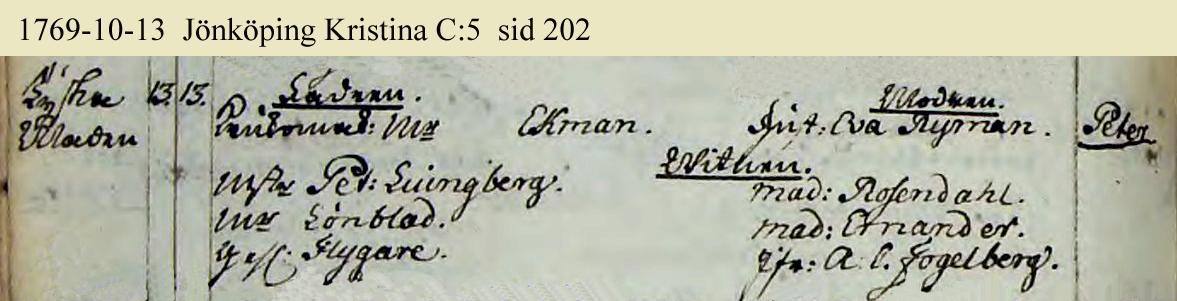 1769-10-13 Jönköping Kristina C:5 sid 202
Tyska 13. 13. Fadren. Modren.
Maden Mr Ekman. Hust: Eva Nyman. Peter
Wittnen.
Mstr Pet: Ljungberg. Mad: Rosendahl.
Mr Lönblad. Mad: Ernander.
Gesl: Flygare. Jfr: A. C. Fogelberg.